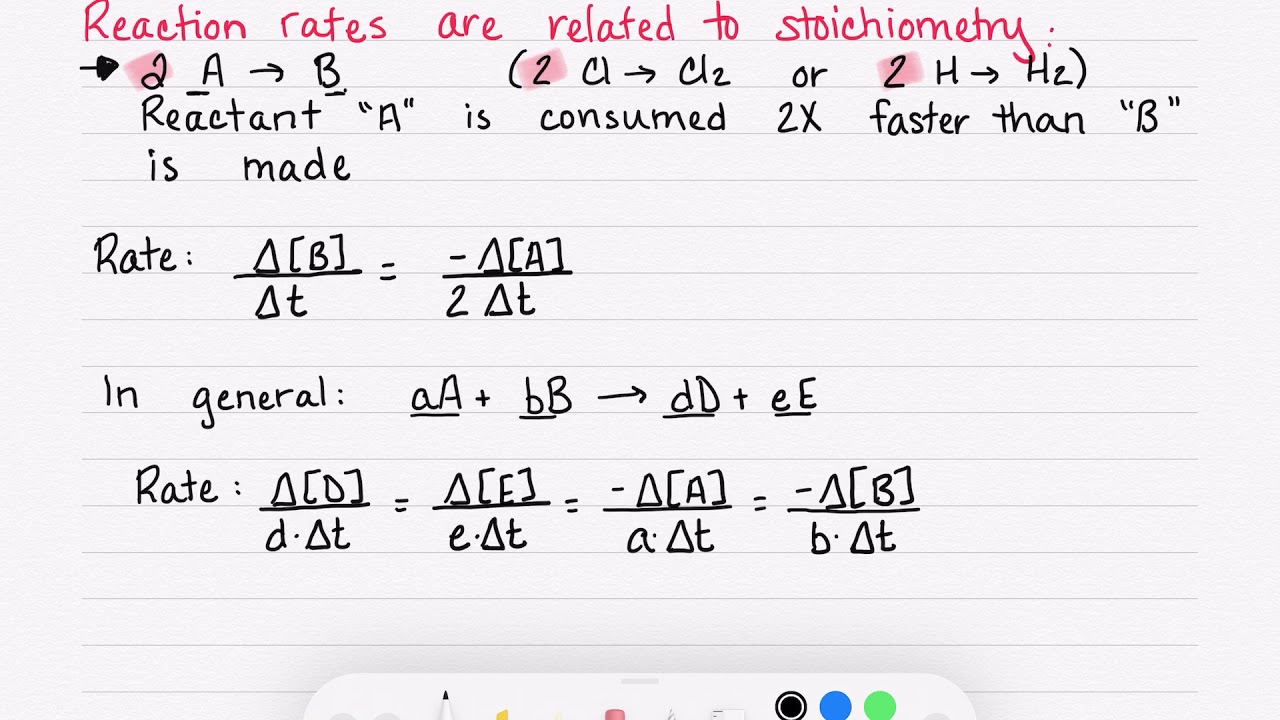 Reaction rates are related to stoichiometry:
→ 2 A → B (2 Cl → Cl2 or 2 H → H2)
Reactant "A" is consumed 2X faster than "B"
is made
Rate: Δ[B]/Δt = -Δ[A]/2 Δt
In general: aA + bB → dD + eE
Rate: Δ[D]/d·Δt = Δ[E]/e·Δt = -Δ[A]/a·Δt = -Δ[B]/b·Δt